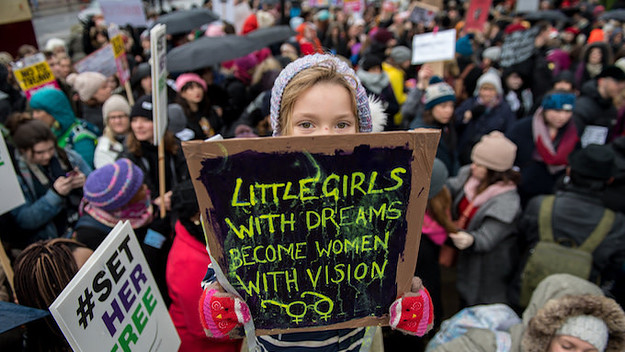 LITTLE GIRLS
WITH DREAMS
BECOME WOMEN
WITH VISION
#SET
HER
FREE